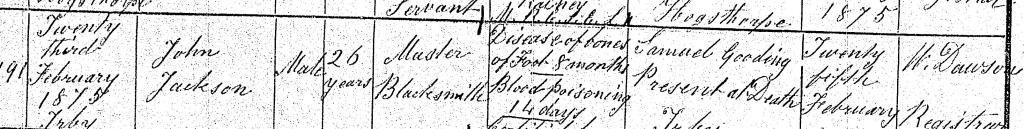 Servant
Hogsthorpe 1875
Twenty
third
February
1875
Irby
191
John
Jackson
Male
26
years
Master
Blacksmith
Disease of bones
of Foot 8 months
Blood poisoning
14 days
Samuel Gooding
Present at Death
Irby
Twenty
fifth
February
W. Dawson
Registrar